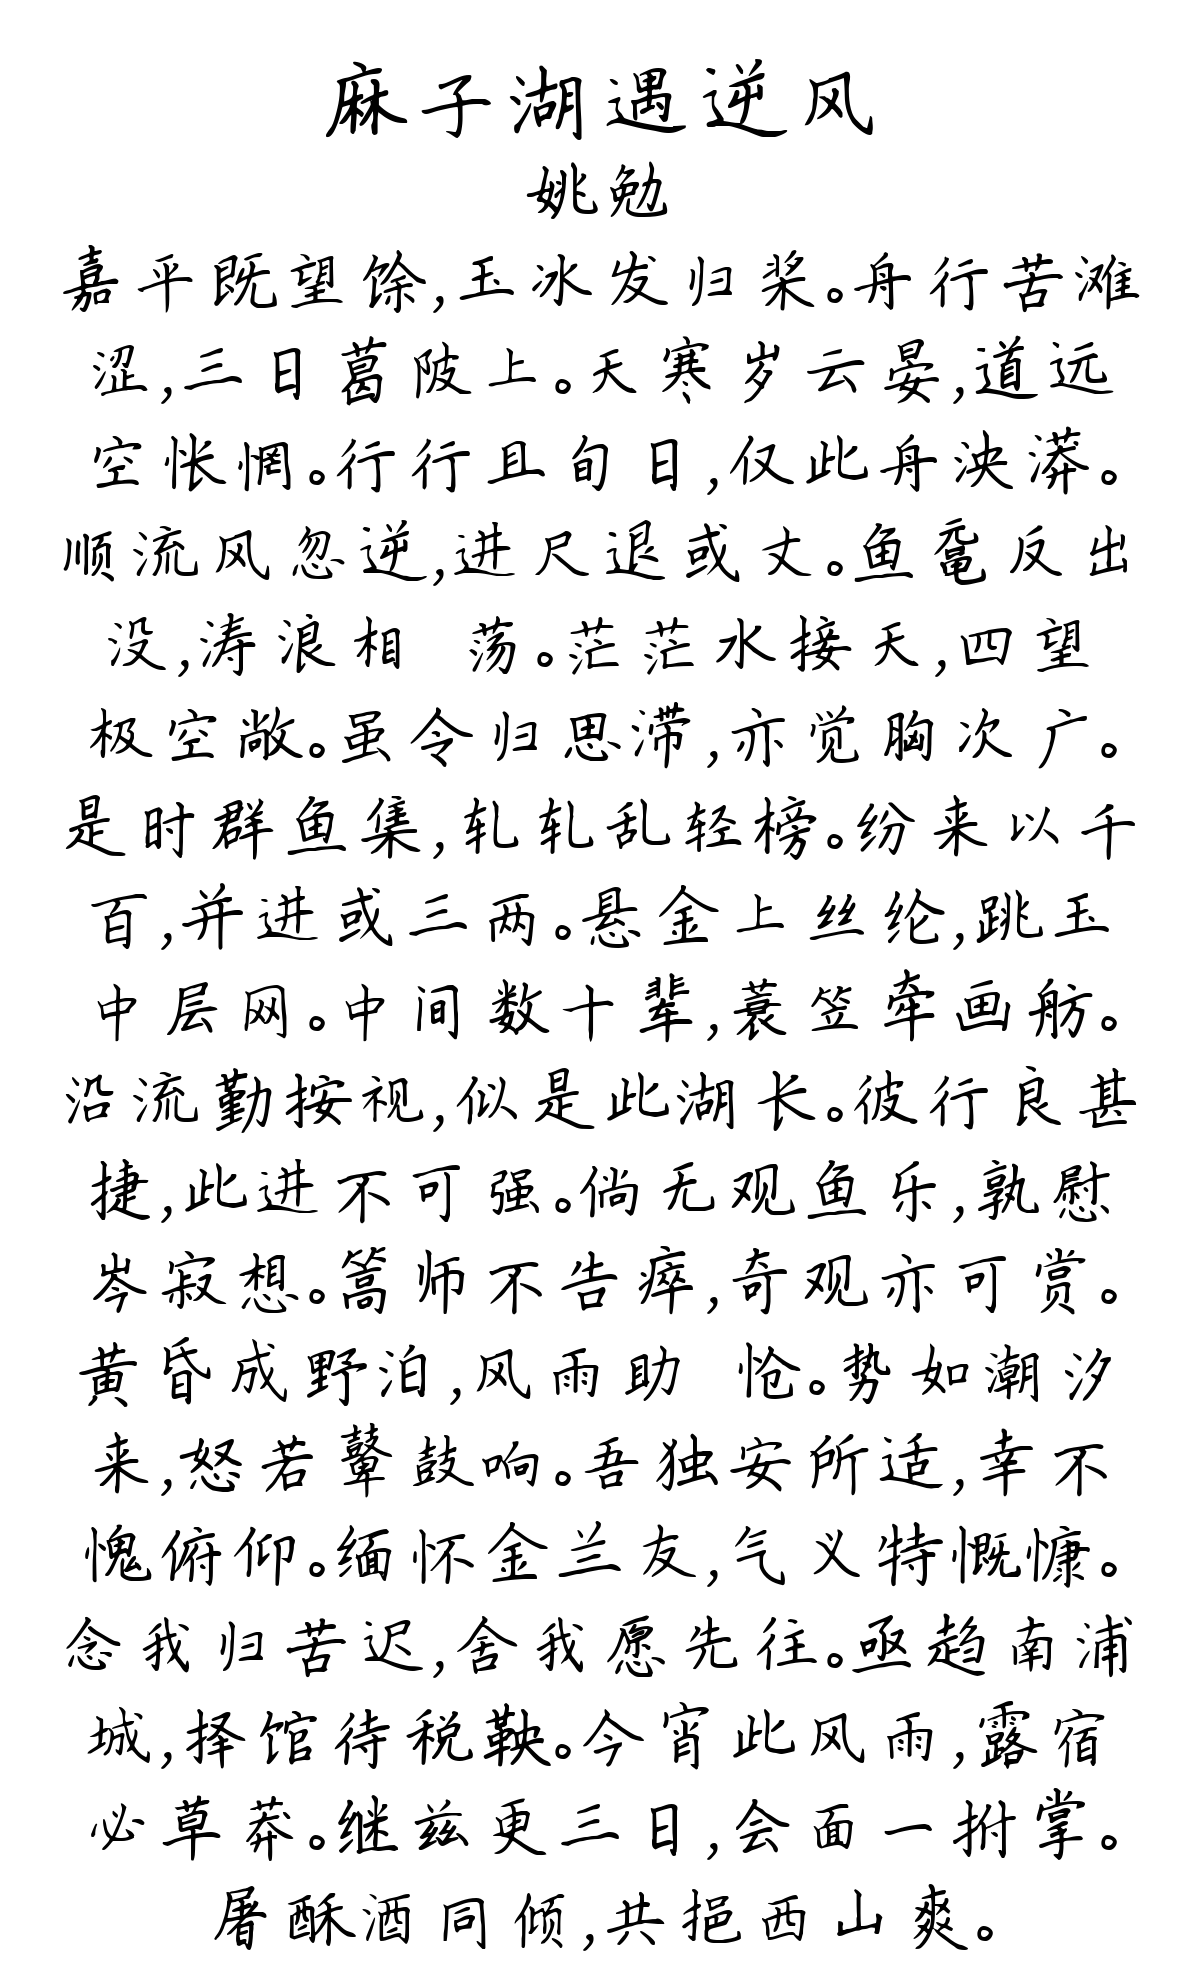 麻子湖遇逆风
姚勉
嘉平既望馀,玉冰发归桨。舟行苦滩
涩,三日葛陂上。天寒岁云晏,道远
空怅惘。行行且旬日,仅此舟泱漭。
顺流风忽逆,进尺退或丈。鱼鼋反出
没,涛浪相 荡。茫茫水接天,四望
极空敞。虽令归思滞,亦觉胸次广。
是时群鱼集,轧轧乱轻榜。纷来以千
百,并进或三两。悬金上丝纶,跳玉
中层网。中间数十辈,蓑笠牵画舫。
沿流勤按视,似是此湖长。彼行良甚
捷,此进不可强。倘无观鱼乐,孰慰
岑寂想。篙师不告瘁,奇观亦可赏。
黄昏成野泊,风雨助 怆。势如潮汐
来,怒若鼙鼓响。吾独安所适,幸不
愧俯仰。缅怀金兰友,气义特慨慷。
念我归苦迟,舍我愿先往。亟趋南浦
城,择馆待税鞅。今宵此风雨,露宿
必草莽。继兹更三日,会面一拊掌。
屠酥酒同倾,共挹西山爽。